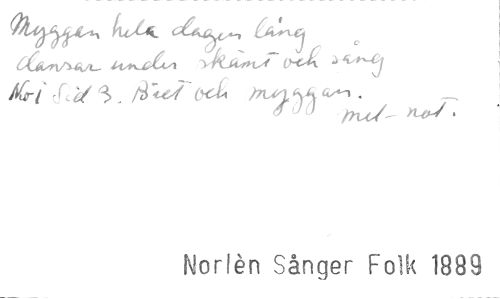 Myggan hela dagen lång
dansar under skämt och sång
No 1 Sid 3. Biet och myggan.
mel-not.
Norlèn Sånger Folk 1889